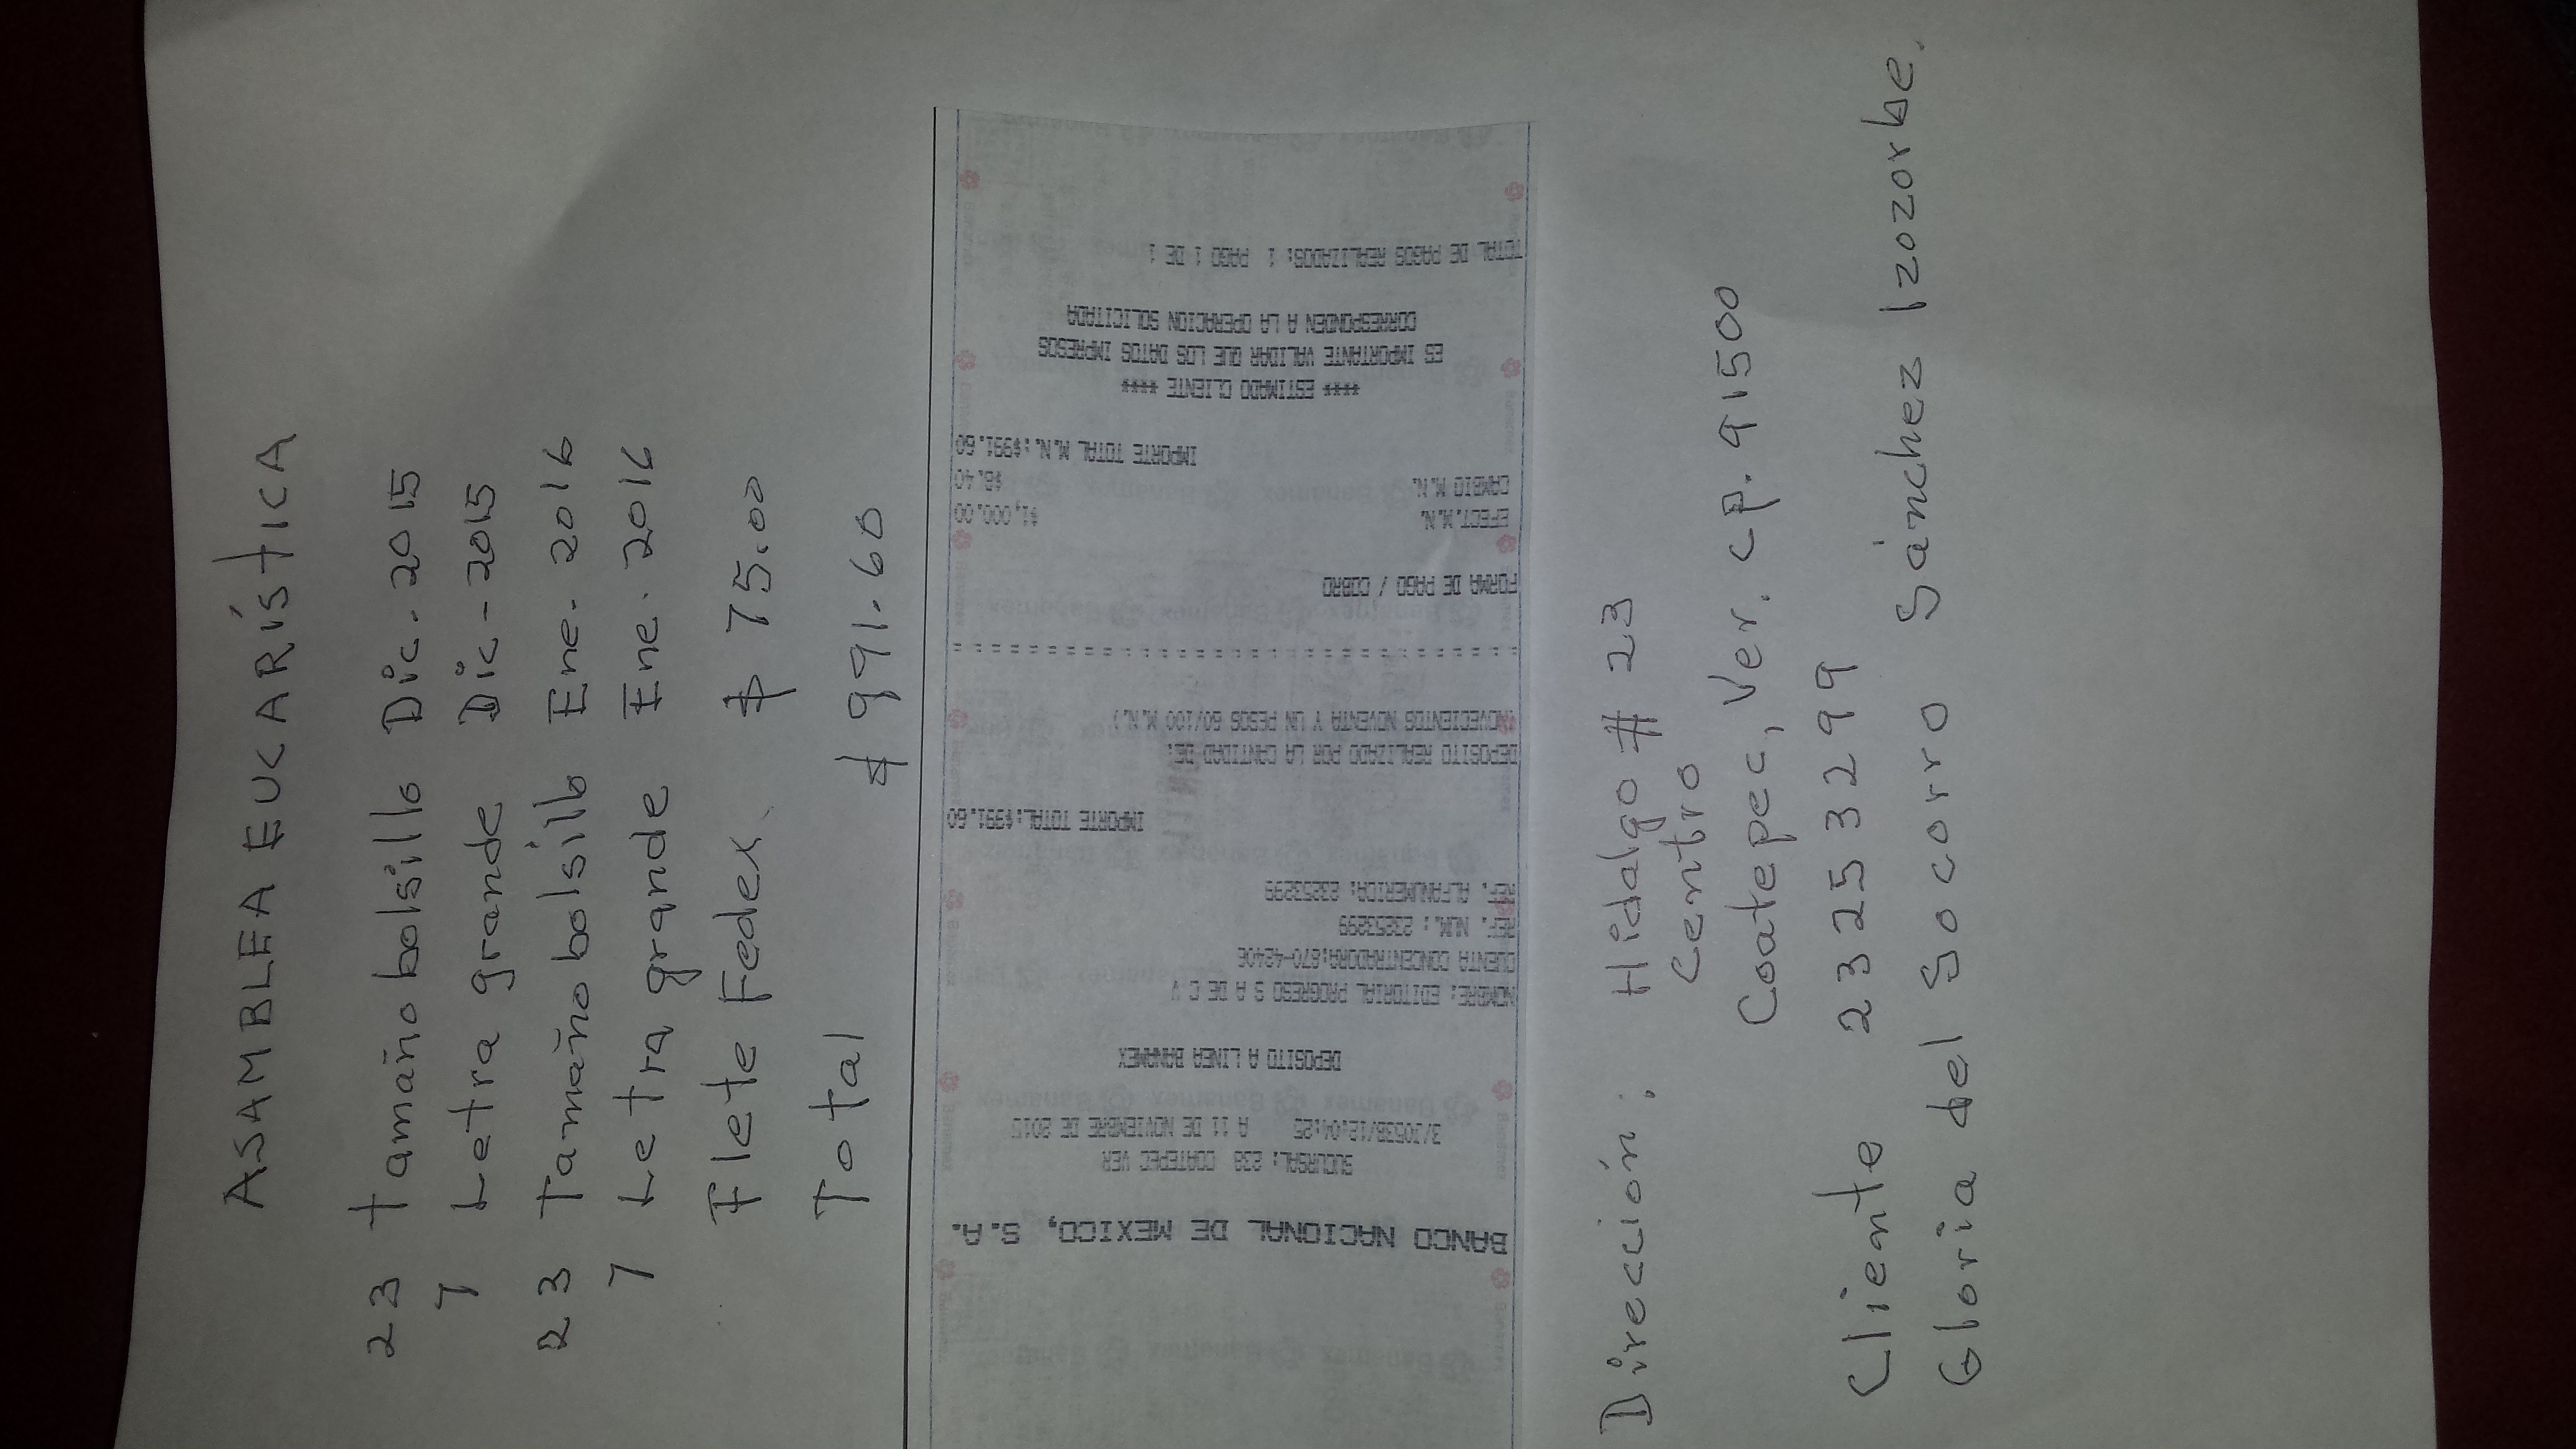 ASAMBLEA EUCARÍSTICA
23 tamaño bolsillo Dic. 2015
7 Letra grande Dic-2015
23 Tamaño bolsillo Ene. 2016
7 Letra grande Ene. 2016
Flete Fedex. $ 75.00
Total $ 991.60
BANCO NACIONAL DE MEXICO, S.A.
SUCURSAL: 238 COATEPEC VER
A 11 DE NOVIEMBRE DE 2015
DEPOSITO A LINEA BANAMEX
NOMBRE: EDITORIAL PROGRESO S A DE C V
CUENTA CONCENTRADORA:870-42406
REF. NUM.: 23253299
REF. ALFANUMERICA: 23253299
IMPORTE TOTAL:$991.60
DEPOSITO REALIZADO POR LA CANTIDAD DE:
(NOVECIENTOS NOVENTA Y UN PESOS 60/100 M.N.)
FORMA DE PAGO / COBRO
EFECT.M.N. $1,000.00
CAMBIO M.N. $8.40
IMPORTE TOTAL M.N.:$991.60
**** ESTIMADO CLIENTE ****
ES IMPORTANTE VALIDAR QUE LOS DATOS IMPRESOS
CORRESPONDEN A LA OPERACION SOLICITADA
TOTAL DE PAGOS REALIZADOS: 1 PAGO 1 DE 1
Dirección: Hidalgo # 23
Centro
Coatepec, Ver. cp. 91500
Cliente 23253299
Gloria del Socorro Sánchez Izozorbe.